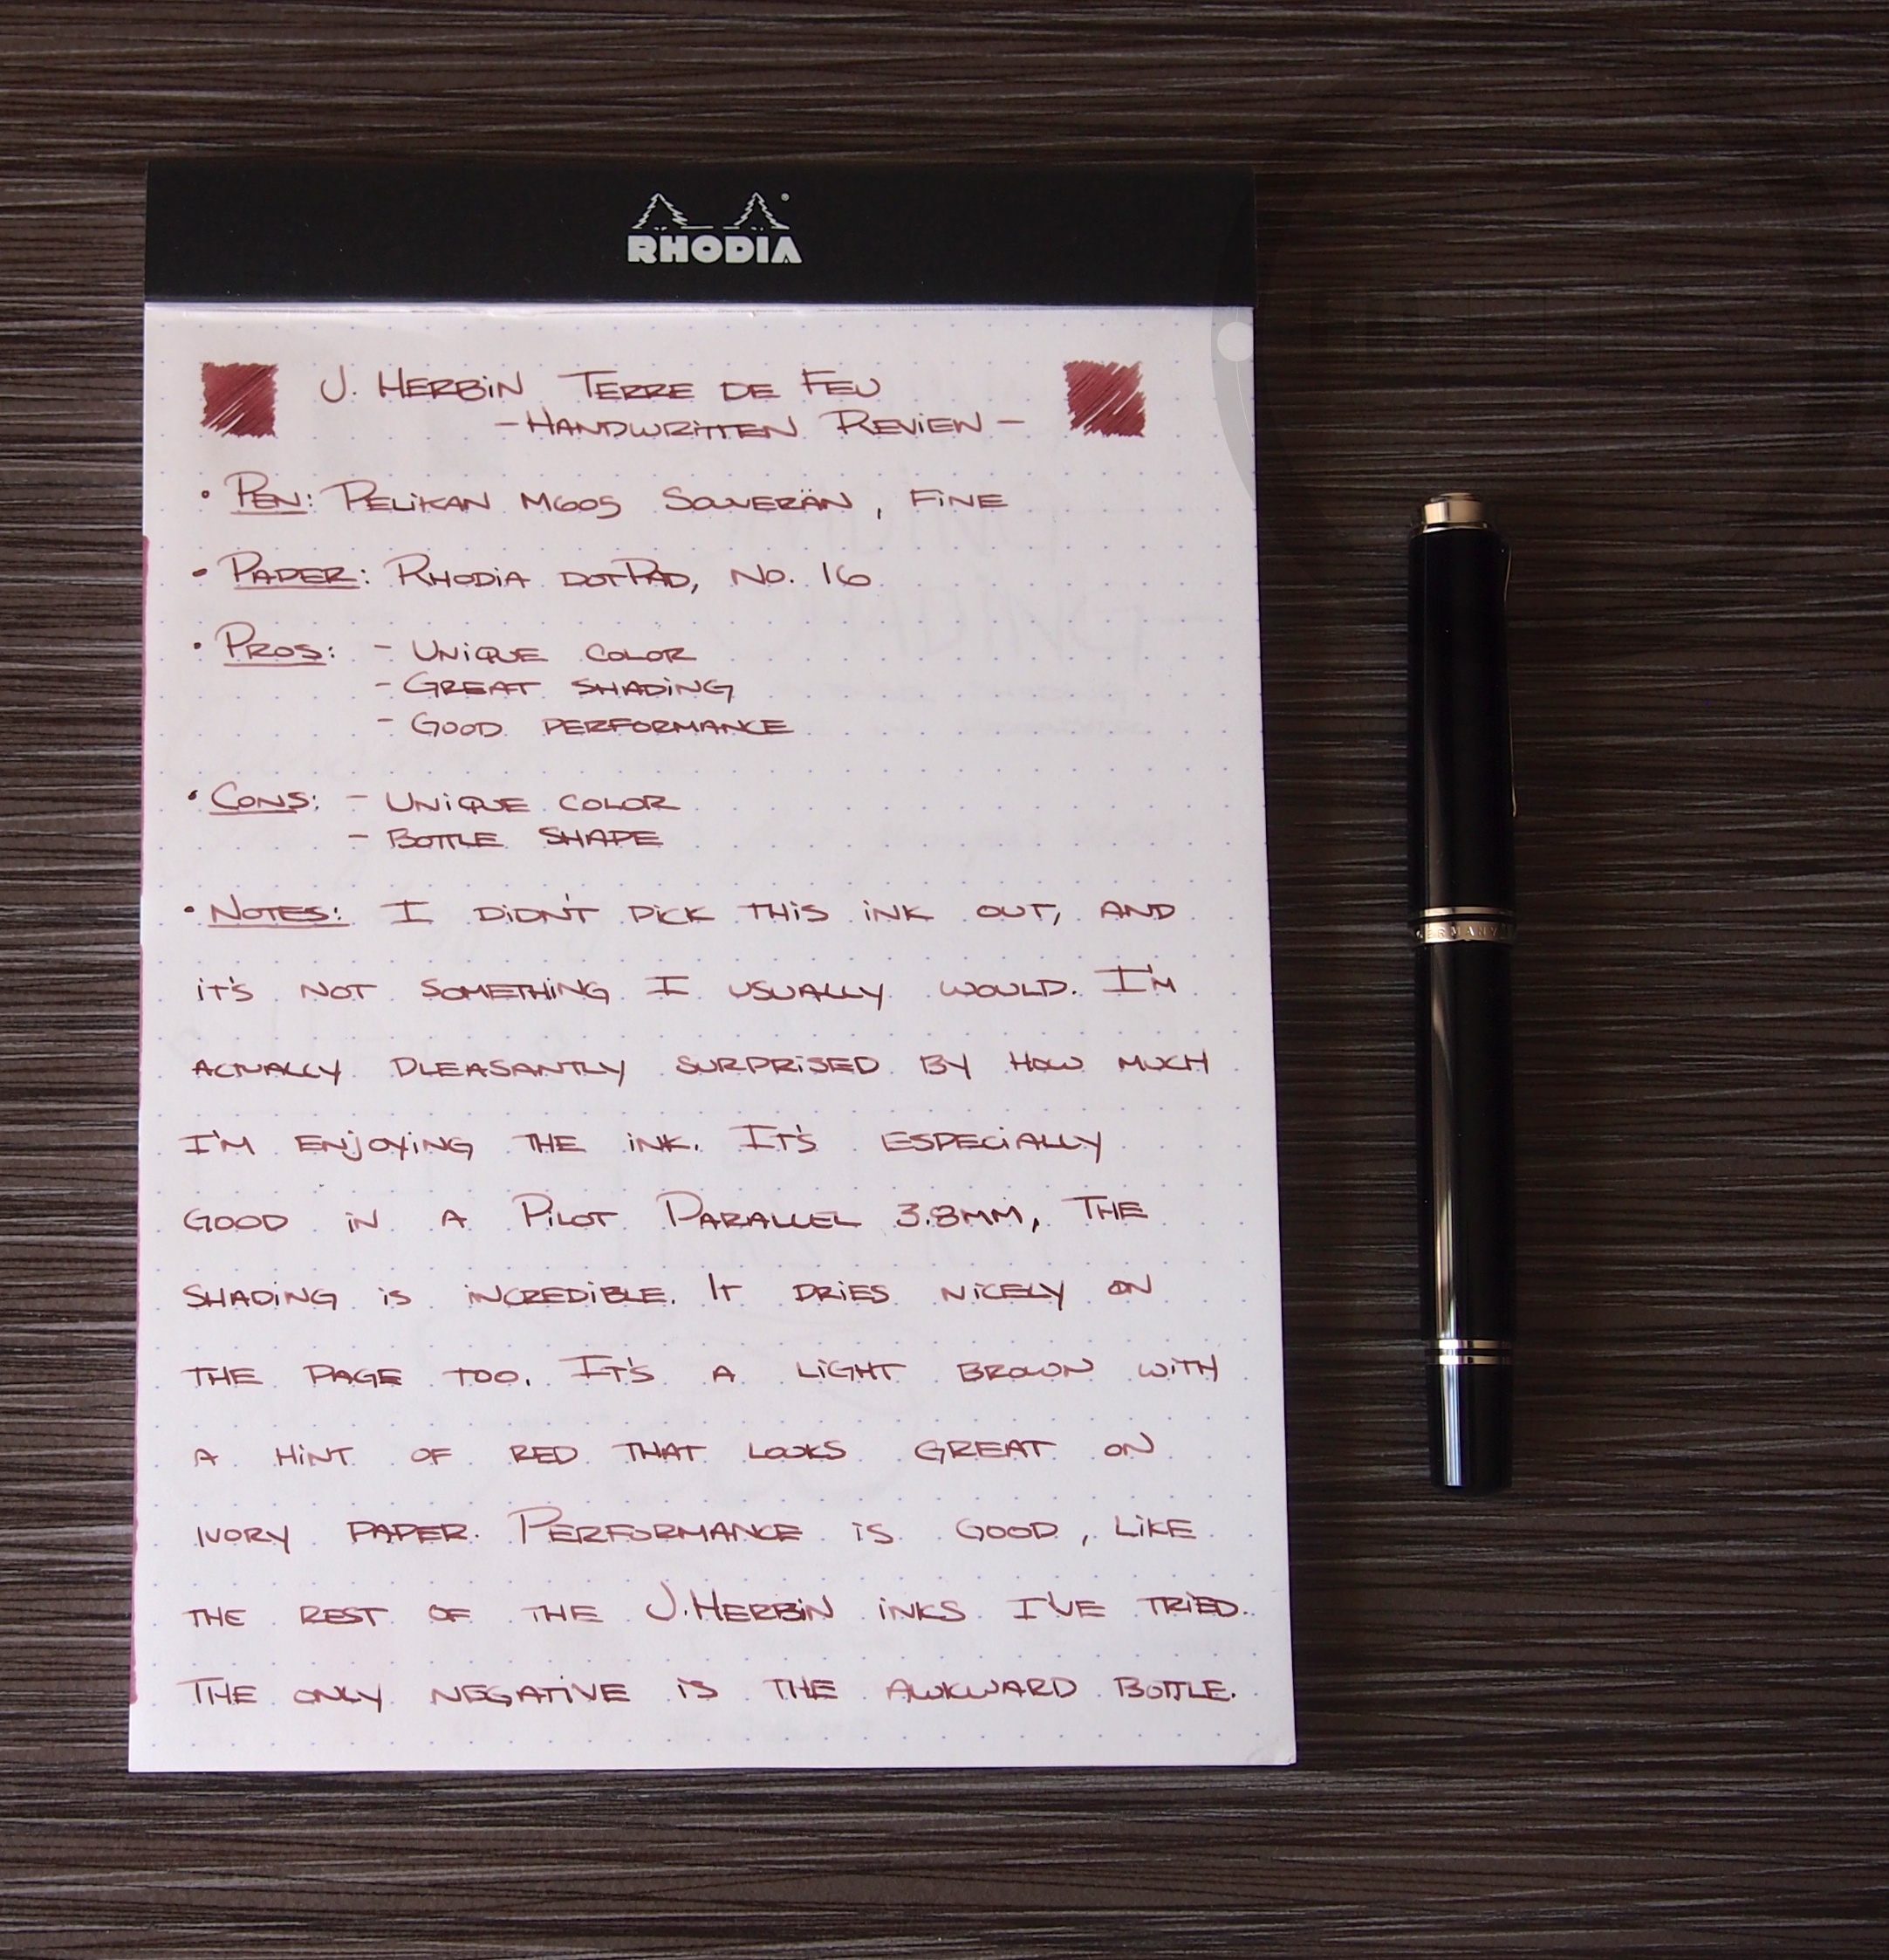 RHODIA
J. HERBIN TERRE DE FEU
- HANDWRITTEN REVIEW -
• PEN: PELIKAN M605 SOUVERÄN, FINE
• PAPER: RHODIA DOTPAD, NO. 16
• PROS: - UNIQUE COLOR
- GREAT SHADING
- GOOD PERFORMANCE
• CONS: - UNIQUE COLOR
- BOTTLE SHAPE
• NOTES: I DIDN'T PICK THIS INK OUT, AND
IT'S NOT SOMETHING I USUALLY WOULD. I'M
ACTUALLY PLEASANTLY SURPRISED BY HOW MUCH
I'M ENJOYING THE INK. IT'S ESPECIALLY
GOOD IN A PILOT PARALLEL 3.8MM, THE
SHADING IS INCREDIBLE. IT DRIES NICELY ON
THE PAGE TOO. IT'S A LIGHT BROWN WITH
A HINT OF RED THAT LOOKS GREAT ON
IVORY PAPER. PERFORMANCE IS GOOD, LIKE
THE REST OF THE J. HERBIN INKS I'VE TRIED.
THE ONLY NEGATIVE IS THE AWKWARD BOTTLE.